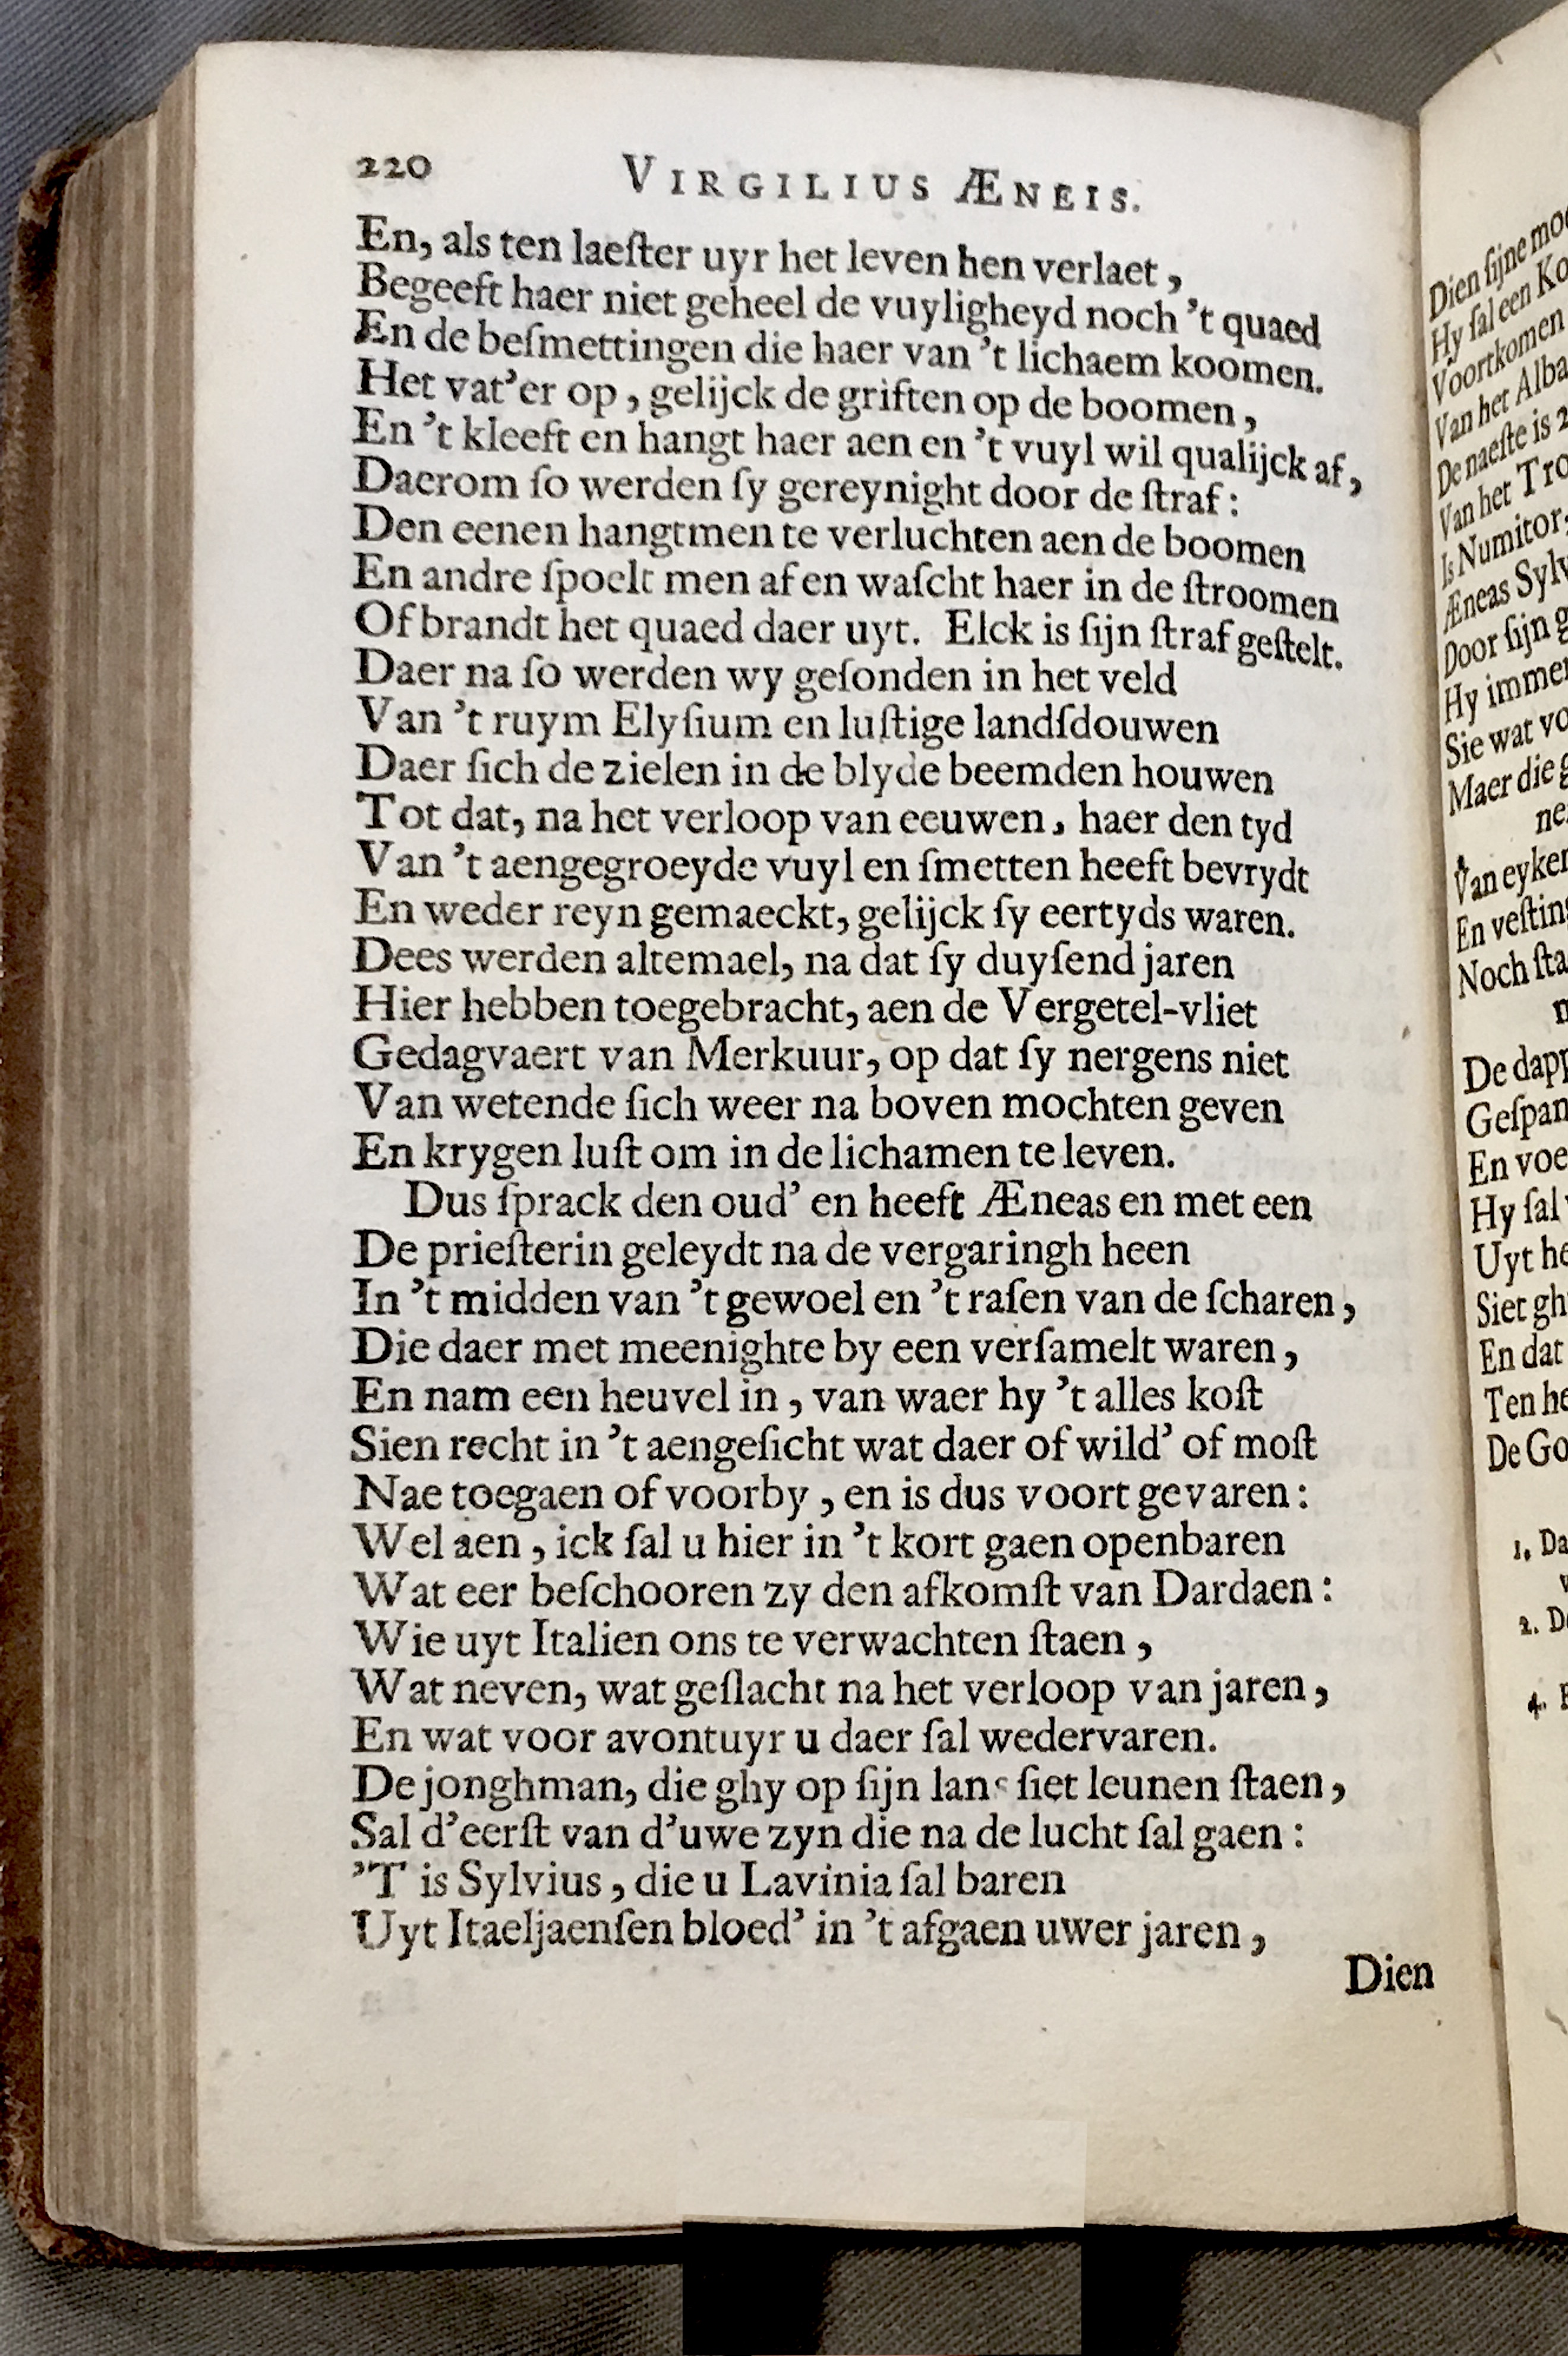 220 VIRGILIUS ÆNEIS.
En, als ten laeſter uyr het leven hen verlaet,
Begeeft haer niet geheel de vuyligheyd noch 't quaed
En de beſmettingen die haer van 't lichaem koomen.
Het vat'er op, gelijck de griften op de boomen,
En 't kleeft en hangt haer aen en 't vuyl wil qualijck af,
Daerom ſo werden ſy gereynight door de ſtraf:
Den eenen hangtmen te verluchten aen de boomen
En andre ſpoelt men af en waſcht haer in de ſtroomen
Of brandt het quaed daer uyt. Elck is ſijn ſtraf geſtelt.
Daer na ſo werden wy geſonden in het veld
Van 't ruym Elyſium en luſtige landſdouwen
Daer ſich de zielen in de blyde beemden houwen
Tot dat, na het verloop van eeuwen, haer den tyd
Van 't aengegroeyde vuyl en ſmetten heeft bevrydt
En weder reyn gemaeckt, gelijck ſy eertyds waren.
Dees werden altemael, na dat ſy duyſend jaren
Hier hebben toegebracht, aen de Vergetel-vliet
Gedagvaert van Merkuur, op dat ſy nergens niet
Van wetende ſich weer na boven mochten geven
En krygen luſt om in de lichamen te leven.
Dus ſprack den oud' en heeft Æneas en met een
De prieſterin geleydt na de vergaringh heen
In 't midden van 't gewoel en 't raſen van de ſcharen,
Die daer met meenighte by een verſamelt waren,
En nam een heuvel in, van waer hy 't alles koſt
Sien recht in 't aengeſicht wat daer of wild' of moſt
Nae toegaen of voorby, en is dus voort gevaren:
Wel aen, ick ſal u hier in 't kort gaen openbaren
Wat eer beſchooren zy den afkomſt van Dardaen:
Wie uyt Italien ons te verwachten ſtaen,
Wat neven, wat geſlacht na het verloop van jaren,
En wat voor avontuyr u daer ſal wedervaren.
De jonghman, die ghy op ſijn lans ſiet leunen ſtaen,
Sal d'eerſt van d'uwe zyn die na de lucht ſal gaen:
'T is Sylvius, die u Lavinia ſal baren
Uyt Itaeljaenſen bloed' in 't afgaen uwer jaren,
Dien
Dien ſijne
Hy ſal een
Voortkomen
Van het
De naeſte is
Van het
Is Numitor,
Æneas
Door ſijn
Hy
Sie wat
Maer die
Van
En
Noch
De
En
Hy ſal
Uyt
Siet
En dat
Ten
De
1.
2.
4.